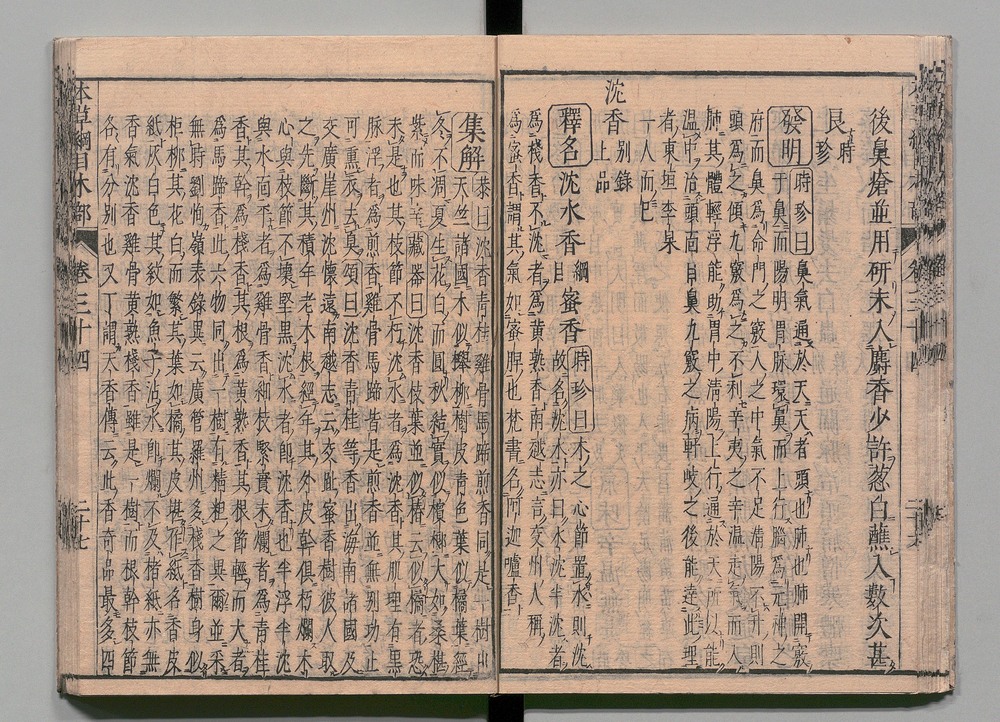 後鼻瘡並用研末入麝香少許葱白蘸入數次甚
良時珍
發明時珍曰鼻氣通於天天者頭也肺也肺開竅
于鼻而陽明胃脉環鼻而上行腦爲元神之
府而鼻爲命門之竅人之中氣不足清陽不升則
頭爲之傾九竅爲之不利辛夷之辛温走氣而入
肺其體輕浮能助胃中清陽上行通於天所以能
温中治頭面目鼻九竅之病軒岐之後能達此理
者東垣李杲
一人而已
沈香別錄上品
釋名沈水香綱目蜜香時珍曰木之心節置水則沈
故名沈水亦曰水沈半沈者
爲棧香不沈者爲黄熟香南越志言交州人稱
爲蜜香謂其氣如蜜脾也梵書名阿迦嚧香
集解恭曰沈香青桂雞骨馬蹄煎香同是一樹出
天竺諸國木似欅柳樹皮青色葉似橘葉經
冬不凋夏生花白而圓秋結實似檳榔大如桑椹
紫而味辛藏器曰沈香枝葉並似椿云似橘者恐
未是也其枝節不朽沈水者爲沈香其肌理有黒
脉浮者爲煎香雞骨馬蹄皆是煎香並無別功止
可熏衣去臭頌曰沈香青桂等香出海南諸國及
交廣崖州沈懷遠南越志云交趾蜜香樹彼人取
之先斷其積年老木根經年其外皮幹俱朽爛木
心與枝節不壞堅黒沈水者卽沈香也半浮半沈
與水面平者爲雞骨香細枝緊實未爛者爲青桂
香其幹爲棧香其根爲黄熟香其根節輕而大者
爲馬蹄香此六物同出一樹有精粗之異爾並采
無時劉恂嶺表錄異云廣管羅州多棧香樹身似
柜柳其花白而繁其葉如橘其皮堪作紙名香皮
紙灰白色其紋如魚子沾水卽爛不及楮紙亦無
香氣沈香雞骨黄熟棧香雖是一樹而根幹枝節
各有分別也又丁謂天香傳云此香奇品最多四
本草綱目木部 卷三十四 二十七